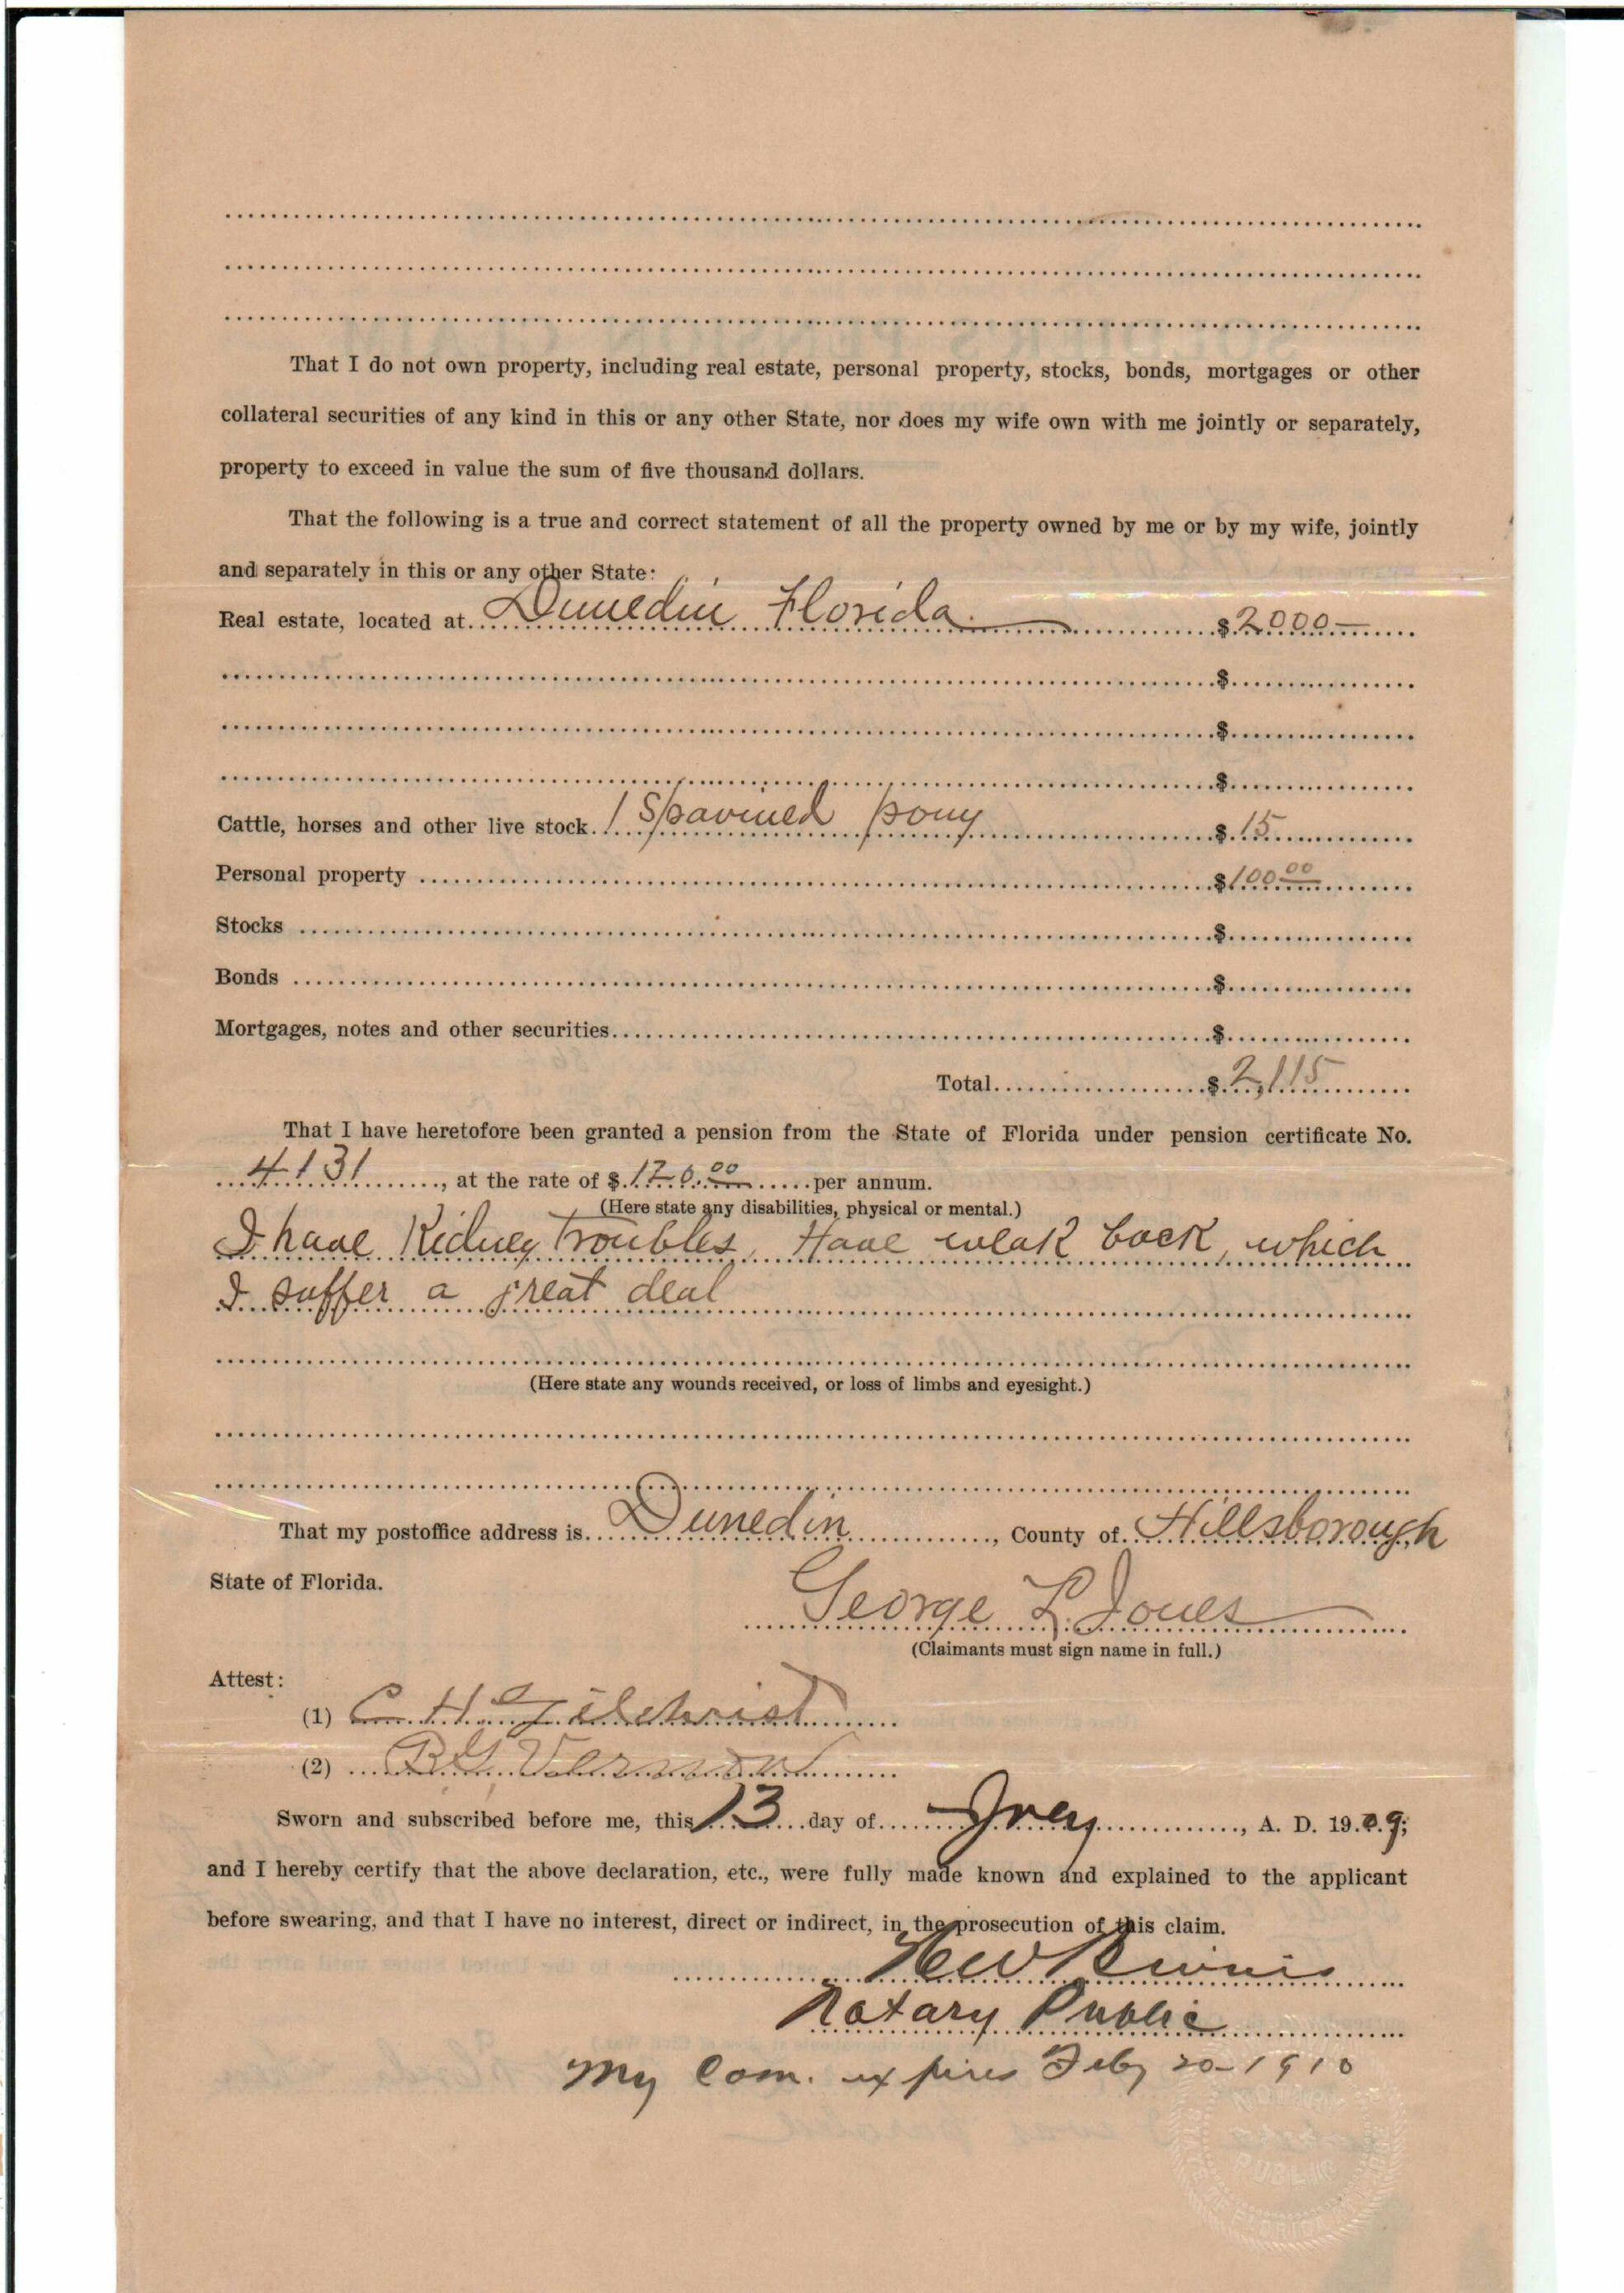 That I do not own property, including real estate, personal property, stocks, bonds, mortgages or other
collateral securities of any kind in this or any other State, nor does my wife own with me jointly or separately,
property to exceed in value the sum of five thousand dollars.
That the following is a true and correct statement of all the property owned by me or by my wife, jointly
and separately in this or any other State:
Real estate, located at Dunedin Florida. $2000—
$
$
$
Cattle, horses and other live stock. 1 Spavined pony $15
Personal property $100.00
Stocks $
Bonds $
Mortgages, notes and other securities $
Total $2,115
That I have heretofore been granted a pension from the State of Florida under pension certificate No.
4131, at the rate of $120.00 per annum.
(Here state any disabilities, physical or mental.)
I have Kidney Troubles, Have weak back, which
I suffer a great deal
(Here state any wounds received, or loss of limbs and eyesight.)
That my postoffice address is Dunedin, County of Hillsborough
State of Florida.
George L. Jones
(Claimants must sign name in full.)
Attest:
(1) C H Gilchrist
(2) B G Vernon
Sworn and subscribed before me, this 13 day of , A. D. 1909;
and I hereby certify that the above declaration, etc., were fully made known and explained to the applicant
before swearing, and that I have no interest, direct or indirect, in the prosecution of this claim.
Notary Public
My Com. expires Feby 20-1910
NOTARY
PUBLIC
STATE OF FLORIDA